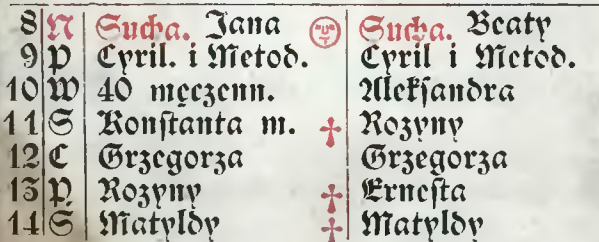 8 N Sucha. Jana Sucha. Beaty
9 P Cyril. i Metod. Cyril i Metod.
10 W 40 męczenn. Alekſandra
11 S Konſtanta m. Rozyny
12 C Grzegorza Grzegorza
13 P. Rozyny Erneſta
14 S Matyldy Matyldy